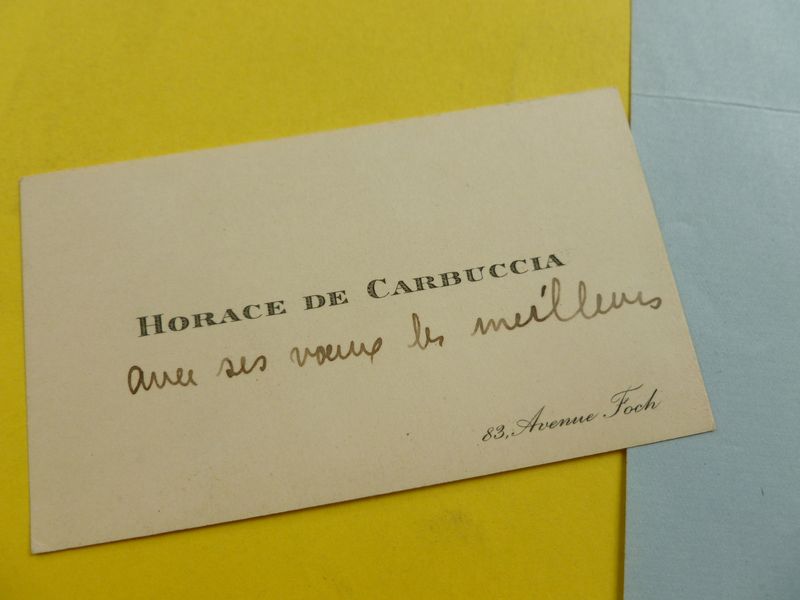 HORACE DE CARBUCCIA
avec ses vœux les meilleurs
83, Avenue Foch